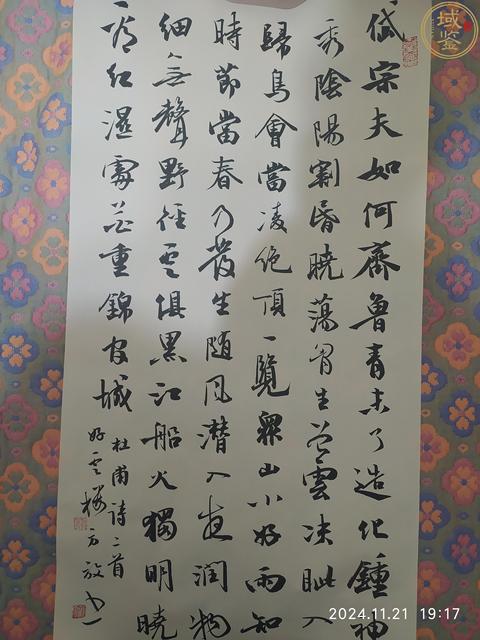 岱宗夫如何齊魯青未了造化鍾神
秀陰陽割昏曉蕩胷生曾雲决眦入
歸鳥會當凌绝頂一覽衆山小好雨知
時節當春乃發生随風潜入夜潤物
細無聲野徑雲俱黑江船火獨明曉
看红濕處花重錦官城
杜甫詩二首
好雲樓
域鉴
2024.11.21 19:17